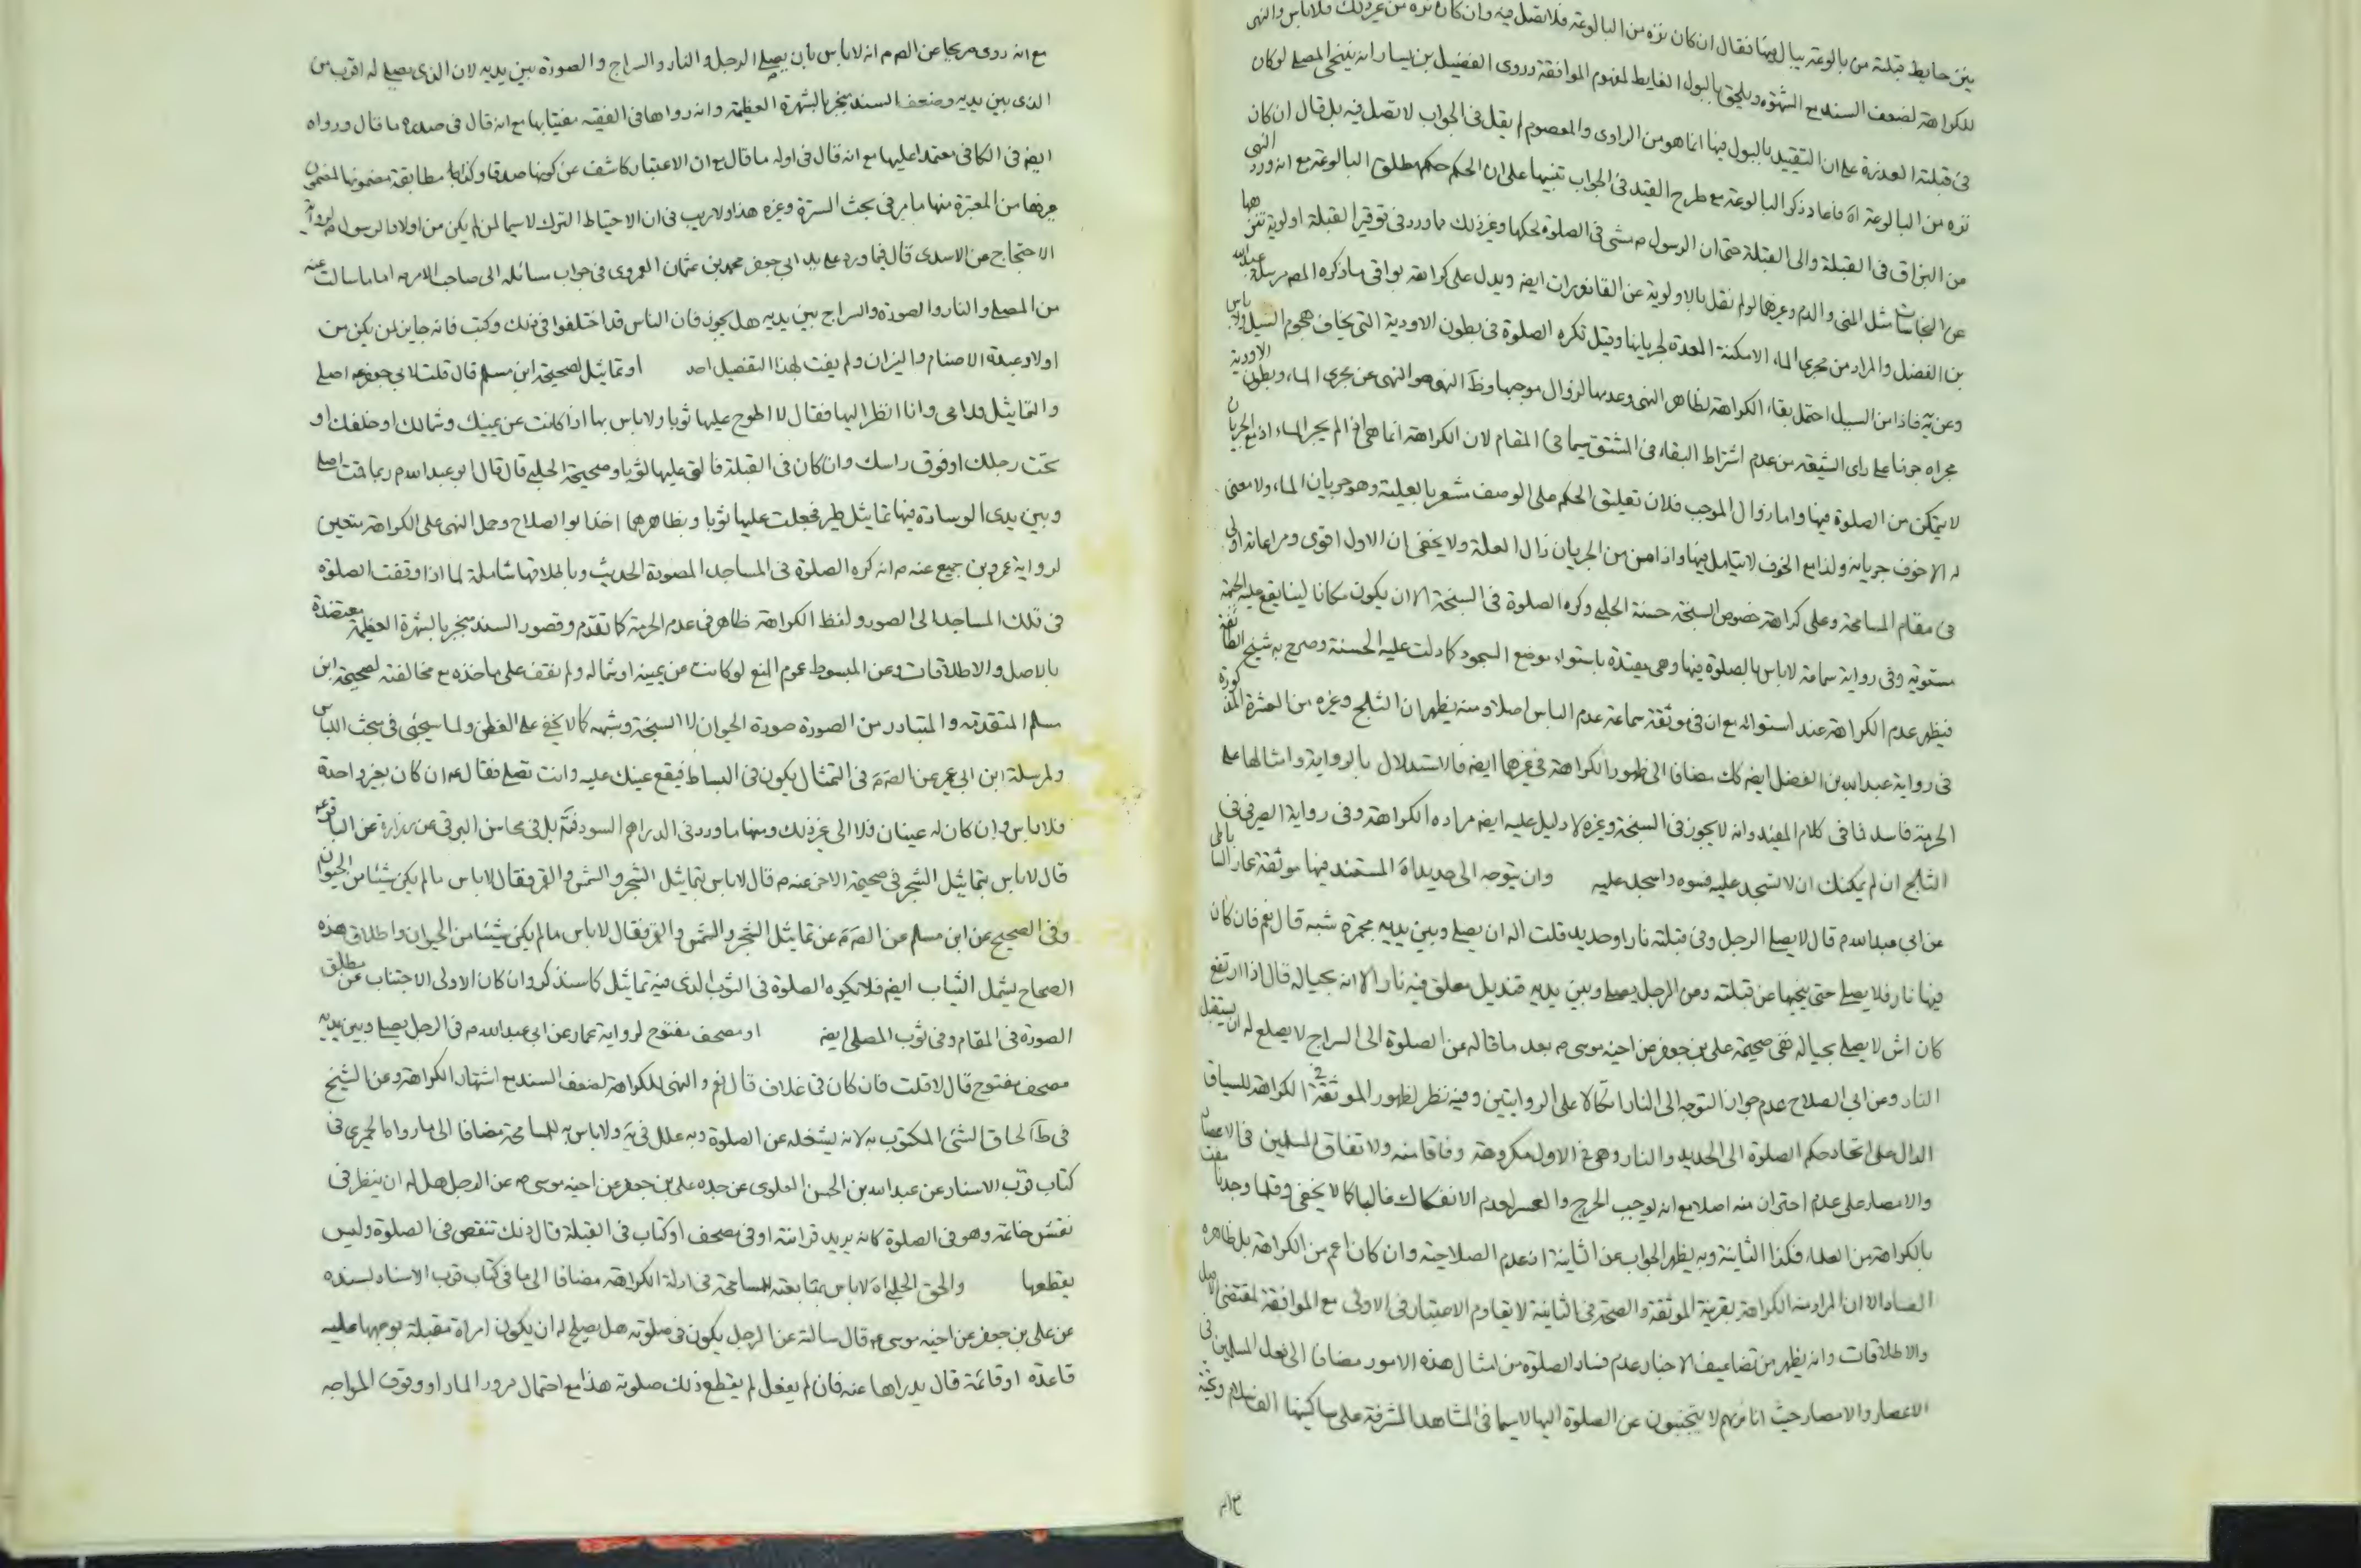 ينز حايط قبلته من بالوعة يبال فيها فقال ان كان نزه من البالوعة فلا تصل فيه وان كان نزه من غير ذلك فلا باس والنهى
للكراهة لضعف السند مع الشهرة ويلحق بالبول الغايط لمفهوم الموافقة وروى الفضيل بن يسار انه يتنحى المصلى لو كان
فى قبلته العذرة على ان التقييد بالبول فيها انما هو من الراوى والمعصوم لم يقل فى الجواب لا تصل فيه بل قال ان كان
نزه من البالوعة اه فاعاد ذكر البالوعة مع طرح القيد فى الجواب تنبيها على ان الحكم حكم مطلق البالوعة مع انه ورد النهى
من البزاق فى القبلة والى القبلة حتى ان الرسول ص مشى فى الصلوة لحكها وغير ذلك مما ورد فى توقير القبلة اولوية تنزهها
عن النجاسات مثل المنى والدم وغيرهما لو لم نقل بالاولوية عن القاذورات ايضا ويدل على كراهة بواقى ما ذكره المص مرسلة عبد الله
بن الفضل والمراد من مجرى الماء الامكنة المعدة لجريانها وقيل تكره الصلوة فى بطون الاودية التى يخاف هجوم السيل
وعن يه فاذا من السيل احتمل بقاء الكراهة لظاهر النهى وعدمها لزوال موجبها وظ النهى هو النهى عن مجرى الماء وبطون الاودية
مجراه جونا على راى الشيعة من عدم اشتراط البقاء فى المشتق سيما فى المقام لان الكراهة انما هى اذا لم يجر الماء اذ مع الجريان
لا يتمكن من الصلوة فيها واما زوال الموجب فلان تعليق الحكم على الوصف مشعر بالعلية وهو جريان الماء ولا معنى
له الا خوف جريانه ولذا مع الخوف لا يتامل فيها واذا من من الجريان زال العلة ولا يخفى ان الاول اقوى ومراعاته اولى
فى مقام المسامحة وعلى كراهة خصوص السبخة حسنة الحلبى وكره الصلوة فى السبخة الا ان يكون مكانا لينا يقع عليه الجبهة
مستوية وفى رواية سماعة لا باس بالصلوة فيها وهى مقيدة باستواء موضع السجود كما دلت عليه الحسنة وصرح به شيخ الطائفة
فيظهر عدم الكراهة عند استوائه مع ان فى موثقة سماعة عدم الباس اصلا ومنه يظهر ان الثلج وغيره من العشرة المذكورة
فى رواية عبد الله بن الفضل ايضا كك مضافا الى ظهور الكراهة فى غيرها ايضا فالاستدلال بالرواية وامثالها على
الحرمة فاسد فما فى كلام المفيد وانه لا يجوز فى السبخة وغيره لا دليل عليه ايضا مراده الكراهة وفى رواية الصيرفى فى
الثلج ان لم يمكنك ان لا تسجد عليه فسوه واسجد عليه وان يتوجه الى حديد اه المستند فيها موثقة عمار الساباطى
عن ابى عبد الله م قال لا يصلى الرجل وفى قبلته نار او حديد قلت اله ان يصلى وبين يديه مجمرة شبه قال نعم فان كان
فيها نار فلا يصلى حتى ينحيها عن قبلته وعن الرجل يصلى وبين يديه قنديل معلق فيه نار الا انه بحياله قال اذا ارتفع
كان اشر لا يصلى بحياله نفى صحيحة على بن جعفر عن اخيه موسى م بعد ما قاله عن الصلوة الى السراج لا يصلح له ان يستقبل
النار وعن ابى الصلاح عدم جواز التوجه الى النار اتكالا على الروايتين وفيه نظر لظهور الموثقة الكراهة للسياق
الدال على اتحاد حكم الصلوة الى الحديد والنار وهو فى الاول مكروهة وفاقا منه ولا تفاق المسلمين فى الاعصار
والامصار على عدم احتراز منه اصلا مع انه لوجب الحرج والعسر لعدم الانفكاك غالبا كما لا يخفى وقلما وجدنا مفت
بالكراهة من العلماء فكذا الثانية وبه يظهر الجواب عن الثانية اذ عدم الصلاحية وان كان اعم من الكراهة بل ظاهره
الفساد الا ان المراد منه الكراهة بقرينة الموثقة والصحة فى الثانية لا يقاوم الاعتبار فى الاولى مع الموافقة لمقتضى الاصل
والاطلاقات وانه يظهر من تضاعيف الاخبار عدم فساد الصلوة من امثال هذه الامور مضافا الى فعل المسلمين فى
الاعصار والامصار حيث انا نريهم لا يتجنبون عن الصلوة اليها لا سيما فى المشاهد المشرفة على ساكنيها الف سلام وتحية
مع انه روى صريحا عن الص م انه لا باس بان يصلى الرجل والنار والسراج والصورة بين يديه لان الذى يصلى له اقرب من
الذى بين يديه وضعف السند منجبر بالشهرة العظيمة وانه رواها فى الفقيه مفتيا بها مع انه قال فى صدره ما قال ورواه
ايضا فى الكافى معتمدا عليها مع انه قال فى اوله ما قال مع ان الاعتبار كاشف عن كونها صدقا وكذا مطابقة مضمونها لمضمون
غيرها من المعتبرة منها ما مر فى بحث السترة وغيره هذا ولا ريب فى ان الاحتياط الترك لا سيما لمن لم يكن من اولاد الرسول ص لرواية
الاحتجاج عن الاسدى قال فيما ورد على يد ابى جعفر محمد بن عثمان العمروى فى جواب مسائله الى صاحب الامر م اما ما سالت عنه
من المصلى والنار والصورة والسراج بين يديه هل يجوز فان الناس قد اختلفوا فى ذلك وكتب فانه جايز لمن يكن من
اولاد عبدة الاصنام والنيران ولم يفت لهذا التفصيل احد او تماثيل لصحيحة ابن مسلم قال قلت لابى جعفر م اصلى
والتماثيل قدامى وانا انظر اليها فقال لا اطرح عليها ثوبا ولا باس بها اذا كانت عن يمينك وشمالك او خلفك او
تحت رجلك او فوق راسك وان كان فى القبلة فالق عليها ثوبا وصحيحة الحلبى قال قال ابو عبد الله م ربما قمت اصلى
وبين يدى الوسادة فيها تماثيل طير فجعلت عليها ثوبا وبظاهرهما اخذ ابو الصلاح وحمل النهى على الكراهة متعين
لرواية عمرو بن جميع عنه م انه كره الصلوة فى المساجد المصورة الحديث وباطلاقها شاملة لما اذا وقعت الصلوة
فى تلك المساجد الى الصور ولفظ الكراهة ظاهر فى عدم الحرمة كما تقدم وقصور السند منجبر بالشهرة العظيمة معتضدة
بالاصل والاطلاقات وعن المبسوط عموم المنع لو كانت عن يمينه او شماله ولم نقف على ماخذه مع مخالفته لصحيحة ابن
مسلم المتقدمة والمتبادر من الصورة صورة الحيوان لا السبخة وشبهه كما لا يخفى على الفطن ولما سيجئ فى مبحث اللباس
ولمرسلة ابن ابى عمير عن الص م فى التمثال يكون فى البساط فيقع عينك عليه وانت تصلى فقال م ان كان بعين واحدة
فلا باس وان كان له عينان فلا الى غير ذلك ومنها ما ورد فى الدراهم السود فثم بل فى محاسن البرقى عن زرارة عن الباقر م
قال لا باس بتماثيل الشجر فى صحيحة الاخر عنه م قال لا باس بتماثيل الشجر والشمس والقمر فقال لا باس ما لم يكن شيئا من الحيوان
وفى الصحيح عن ابن مسلم عن الص م عن تماثيل الشجر والشمس والقمر فقال لا باس ما لم يكن شيئا من الحيوان واطلاق هذه
الصحاح يشمل الثياب ايضا فلا تكره الصلوة فى الثوب الذى فيه تماثيل كما سنذكر وان كان الاولى الاجتناب عن مطلق
الصورة فى المقام وفى ثوب المصلى ايضا او مصحف مفتوح لرواية عمار عن ابى عبد الله م فى الرجل يصلى وبين يديه
مصحف مفتوح قال لا قلت فان كان فى غلاف قال نعم والنهى للكراهة لضعف السند مع اشتهار الكراهة وعن الشيخ
فى ط الحاق الشئ المكتوب به لانه يشغله عن الصلوة وبه علل فى يه ولا باس به للمسامحة مضافا الى ما رواه الحميرى فى
كتاب قرب الاسناد عن عبد الله بن الحسن العلوى عن جده على بن جعفر عن اخيه موسى م عن الرجل هل له ان ينظر فى
نقش خاتمه وهو فى الصلوة كانه يريد قرائته او فى مصحف او كتاب فى القبلة قال ذلك تنقص فى الصلوة وليس
يقطعها والحق الحلبى اه لا باس بمتابعته للمسامحة فى ادلة الكراهة مضافا الى ما فى كتاب قرب الاسناد لسنده
عن على بن جعفر عن اخيه موسى م قال سالته عن الرجل يكون فى صلوته هل يصلح له ان يكون امراة مقبلة بوجهها عليه
قاعدة او قائمة قال يدراها عنه فان لم يفعل لم يقطع ذلك صلوته هذا مع احتمال مرور المار او وقوف المواجه